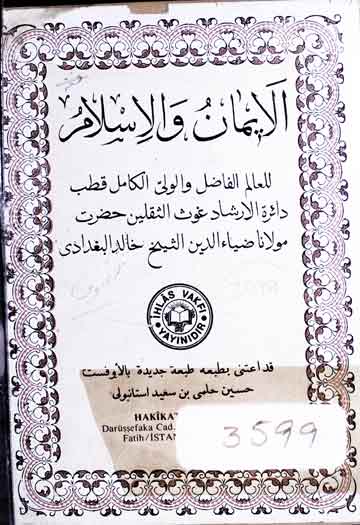 الإيمان والإسلام
للعالم الفاضل والولي الكامل قطب
دائرة الارشاد غوث الثقلين حضرت
مولانا ضياء الدين الشيخ خالد البغدادى
İHLÂS VAKFI
YAYINIDIR
قد اعتنى بطبعه طبعة جديدة بالأوفست
حسين حلمى بن سعيد استانبولى
HAKÎKA
Darüşşefaka Cad.
Fatih/İSTAN
3599